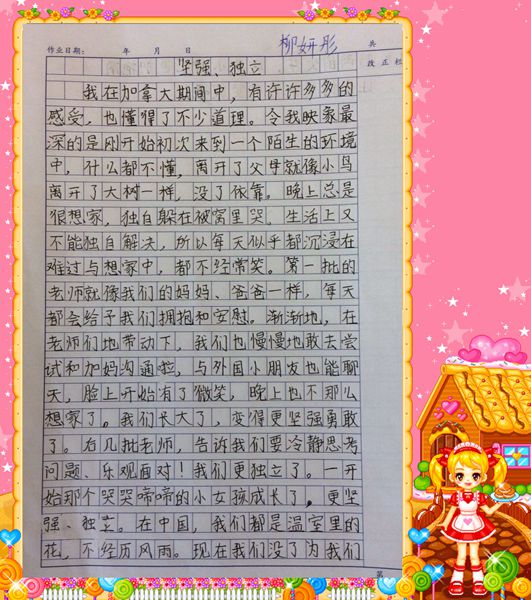 柳妍彤
作业日期： 年 月 日 共
坚强、独立 改正栏
我在加拿大期间中，有许许多多的
感受，也懂得了不少道理。令我映象最
深的是刚开始初次来到一个陌生的环境
中，什么都不懂，离开了父母就像小鸟
离开了大树一样，没了依靠。晚上总是
很想家，独自躲在被窝里哭，生活上又
不能独自解决，所以每天似乎都沉浸在
难过与想家中，都不经常笑。第一批的
老师就像我们的妈妈、爸爸一样，每天
都会给予我们拥抱和安慰。渐渐地，在
老师们地带动下，我们也慢慢地敢去尝
试和加妈沟通啦，与外国小朋友也能聊
天，脸上开始有了微笑，晚上也不那么
想家了。我们长大了，变得更坚强勇敢
了。后几批老师，告诉我们要冷静思考
问题、乐观面对！我们更独立了。一开
始那个哭哭啼啼的小女孩成长了，更坚
强、独立。在中国，我们都是温室里的
花，不经历风雨。现在我们没了为我们
第